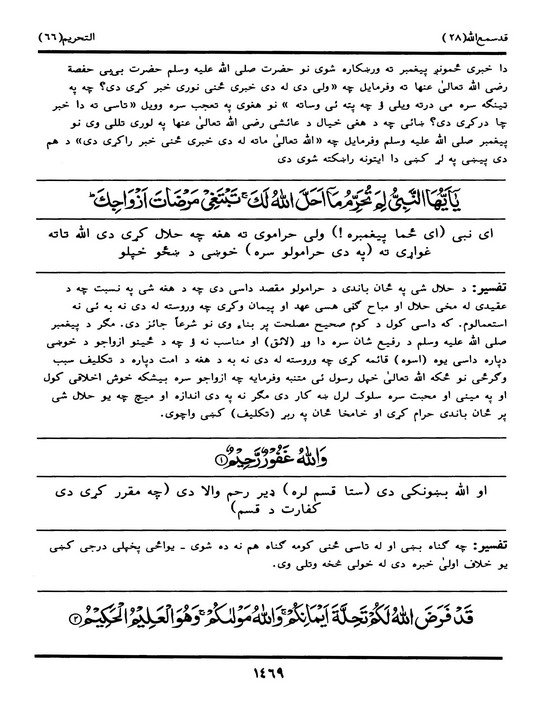 قدسمع‌الله (۲۸)
التحریم (۶۶)
دا خبری ځمونږ پیغمبر ته ورښکاره شوی نو حضرت صلی الله علیه وسلم حضرت بی‌بی حفصة
رضی الله عنها ته وفرمایل چه «ولی دی له دی خبری ځنی نوری خبر کړی دی؟ چه په
تینګه سره می درته ویلی ؤ چه پته ئی وساته » نو هغوی په تعجب سره وویل «تاسی ته دا خبر
چا درکړی دی؟ ښائی چه د هغی خیال د عائشی رضی الله تعالیٰ عنها په لوری تللی وی نو
پیغمبر صلی الله علیه وسلم وفرمایل چه «الله تعالیٰ ماته له دی خبری ځنی خبر راکړی دی» د هم
دی پیښی په لړ کښی دا ایتونه راښکته شوی دی
یٰۤاَیُّهَا النَّبِیُّ لِمَ تُحَرِّمُ مَاۤ اَحَلَّ اللّٰهُ لَكَ ۚ تَبْتَغِیْ مَرْضَاتَ اَزْوَاجِكَ ؕ
ای نبی (ای ځما پیغمبره!) ولی حراموی ته هغه چه حلال کړی دی الله تاته
غواړی ته (په دی حرامولو سره) خوښی د ښځو خپلو
تفسیر: د حلال شی په ځان باندی د حرامولو مقصد داسی دی چه د هغه شی په نسبت چه د
عقیدی له مخی حلال او مباح ګڼی هسی عهد او پیمان وکړی چه وروسته له دی نه به ئی نه
استعمالوم. که داسی کول د کوم صحیح مصلحت پر بناء وی نو شرعاً جائز دی. مګر د پیغمبر
صلی الله علیه وسلم د رفیع شان سره دا وړ (لائق) او مناسب نه ؤ چه د ځینو ازواجو د خوښی
دپاره داسی یوه (اسوه) قائمه کړی چه وروسته له دی نه به د هغه د امت دپاره د تکلیف سبب
وګرځی نو ځکه الله تعالیٰ خپل رسول ئی متنبه وفرمایه چه ازواجو سره بیشکه خوش اخلاقی کول
او په مینی او محبت سره سلوک لرل ښه کار دی مګر نه په دی اندازه او میچ چه یو حلال شی
پر ځان باندی حرام کړی او خامخا ځان په ربړ (تکلیف) کښی واچوی.
وَاللّٰهُ غَفُوْرٌ رَّحِیْمٌ ۝۱
او الله بښونکی دی (ستا قسم لره) ډیر رحم والا دی (چه مقرر کړی دی
کفارت د قسم)
تفسیر: چه ګناه بښی او له تاسی ځنی کومه ګناه هم نه ده شوی ـ یوائځی پخپلی درجی کښی
یو خلاف اولیٰ خبره دی له خولی څخه وتلی وی.
قَدْ فَرَضَ اللّٰهُ لَكُمْ تَحِلَّةَ اَیْمَانِكُمْ ۚ وَاللّٰهُ مَوْلٰىكُمْ ۚ وَهُوَ الْعَلِیْمُ الْحَكِیْمُ ۝۲
۱٤٦۹